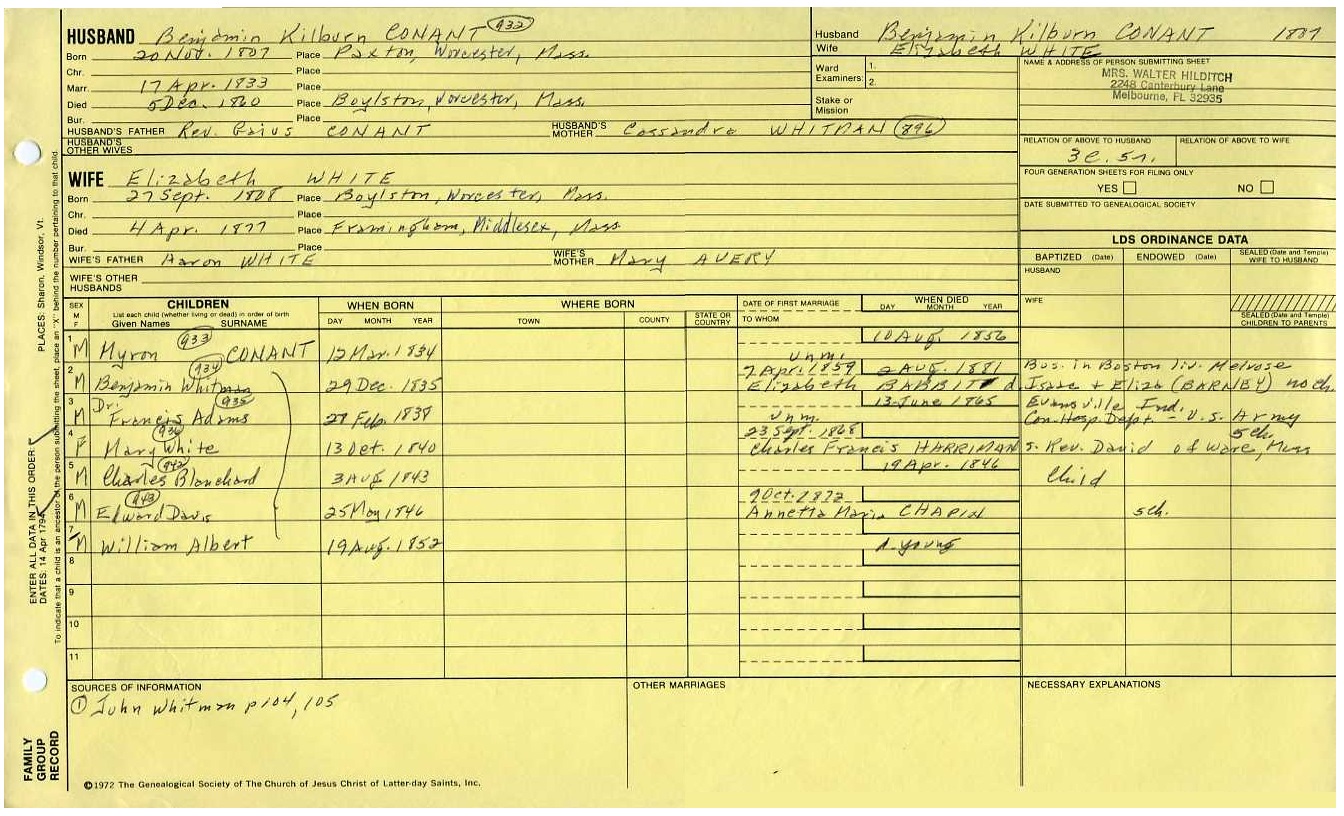 HUSBAND Benjamin Kilburn CONANT 932
Born 20 Nov. 1807 Place Paxton, Worcester, Mass.
Chr. Place
Marr. 17 Apr. 1833 Place
Died 5 Dec. 1860 Place Boylston, Worcester, Mass.
Bur. Place
HUSBAND'S FATHER Rev. Gaius CONANT HUSBAND'S MOTHER Cassandra WHITMAN 896
HUSBAND'S OTHER WIVES
Husband Benjamin Kilburn CONANT 1807
Wife Elizabeth WHITE
Ward Examiners: 1.
2.
Stake or Mission
NAME & ADDRESS OF PERSON SUBMITTING SHEET
MRS. WALTER HILDITCH
2248 Canterbury Lane
Melbourne, FL 32935
RELATION OF ABOVE TO HUSBAND RELATION OF ABOVE TO WIFE
3c. 5r.
FOUR GENERATION SHEETS FOR FILING ONLY
YES NO
DATE SUBMITTED TO GENEALOGICAL SOCIETY
WIFE Elizabeth WHITE
Born 27 Sept. 1808 Place Boylston, Worcester, Mass.
Chr. Place
Died 4 Apr. 1877 Place Framingham, Middlesex, Mass
Bur. Place
WIFE'S FATHER Aaron WHITE WIFE'S MOTHER Mary AVERY
WIFE'S OTHER HUSBANDS
LDS ORDINANCE DATA
BAPTIZED (Date) ENDOWED (Date) SEALED (Date and Temple) WIFE TO HUSBAND
HUSBAND
WIFE
SEALED (Date and Temple) CHILDREN TO PARENTS
SEX M F CHILDREN WHEN BORN WHERE BORN DATE OF FIRST MARRIAGE WHEN DIED
List each child (whether living or dead) in order of birth
Given Names SURNAME DAY MONTH YEAR TOWN COUNTY STATE OR COUNTRY TO WHOM DAY MONTH YEAR
1 M Myron 933 CONANT 12 Mar. 1834 unm. 10 Aug. 1856
2 M Benjamin Whitman 934 29 Dec. 1835 7 Apr. 1859 2 AUG. 1881 Bus. in Boston liv. Melrose
Elizabeth BABBIT d. Isaac + Eliza (BARNEY) no ch.
3 M Dr. Francis Adams 935 27 Feb. 1838 unm. 13 June 1865 Evansville Ind.
Con. Hosp. Dept. - U.S. Army
4 F Mary White 936 13 Oct. 1840 23 Sept. 1868 5 ch.
Charles Francis HARRIMAN s. Rev. David of Ware, Mass
5 M Charles Blanchard 942 3 Aug 1843 19 Apr. 1846 Child
6 M Edward Davis 943 25 May 1846 9 Oct. 1872
Annetta Maria CHAPIN 5ch.
7 M William Albert 19 Aug. 1852 d. young
8
9
10
11
SOURCES OF INFORMATION OTHER MARRIAGES NECESSARY EXPLANATIONS
① John Whitman p 104, 105
©1972 The Genealogical Society of The Church of Jesus Christ of Latter-day Saints, Inc.
FAMILY GROUP RECORD
ENTER ALL DATA IN THIS ORDER:
PLACES: Sharon, Windsor, Vt.
DATES: 14 Apr 1794
To indicate that a child is an ancestor of the person submitting the sheet, place an "X" behind the number pertaining to that child.